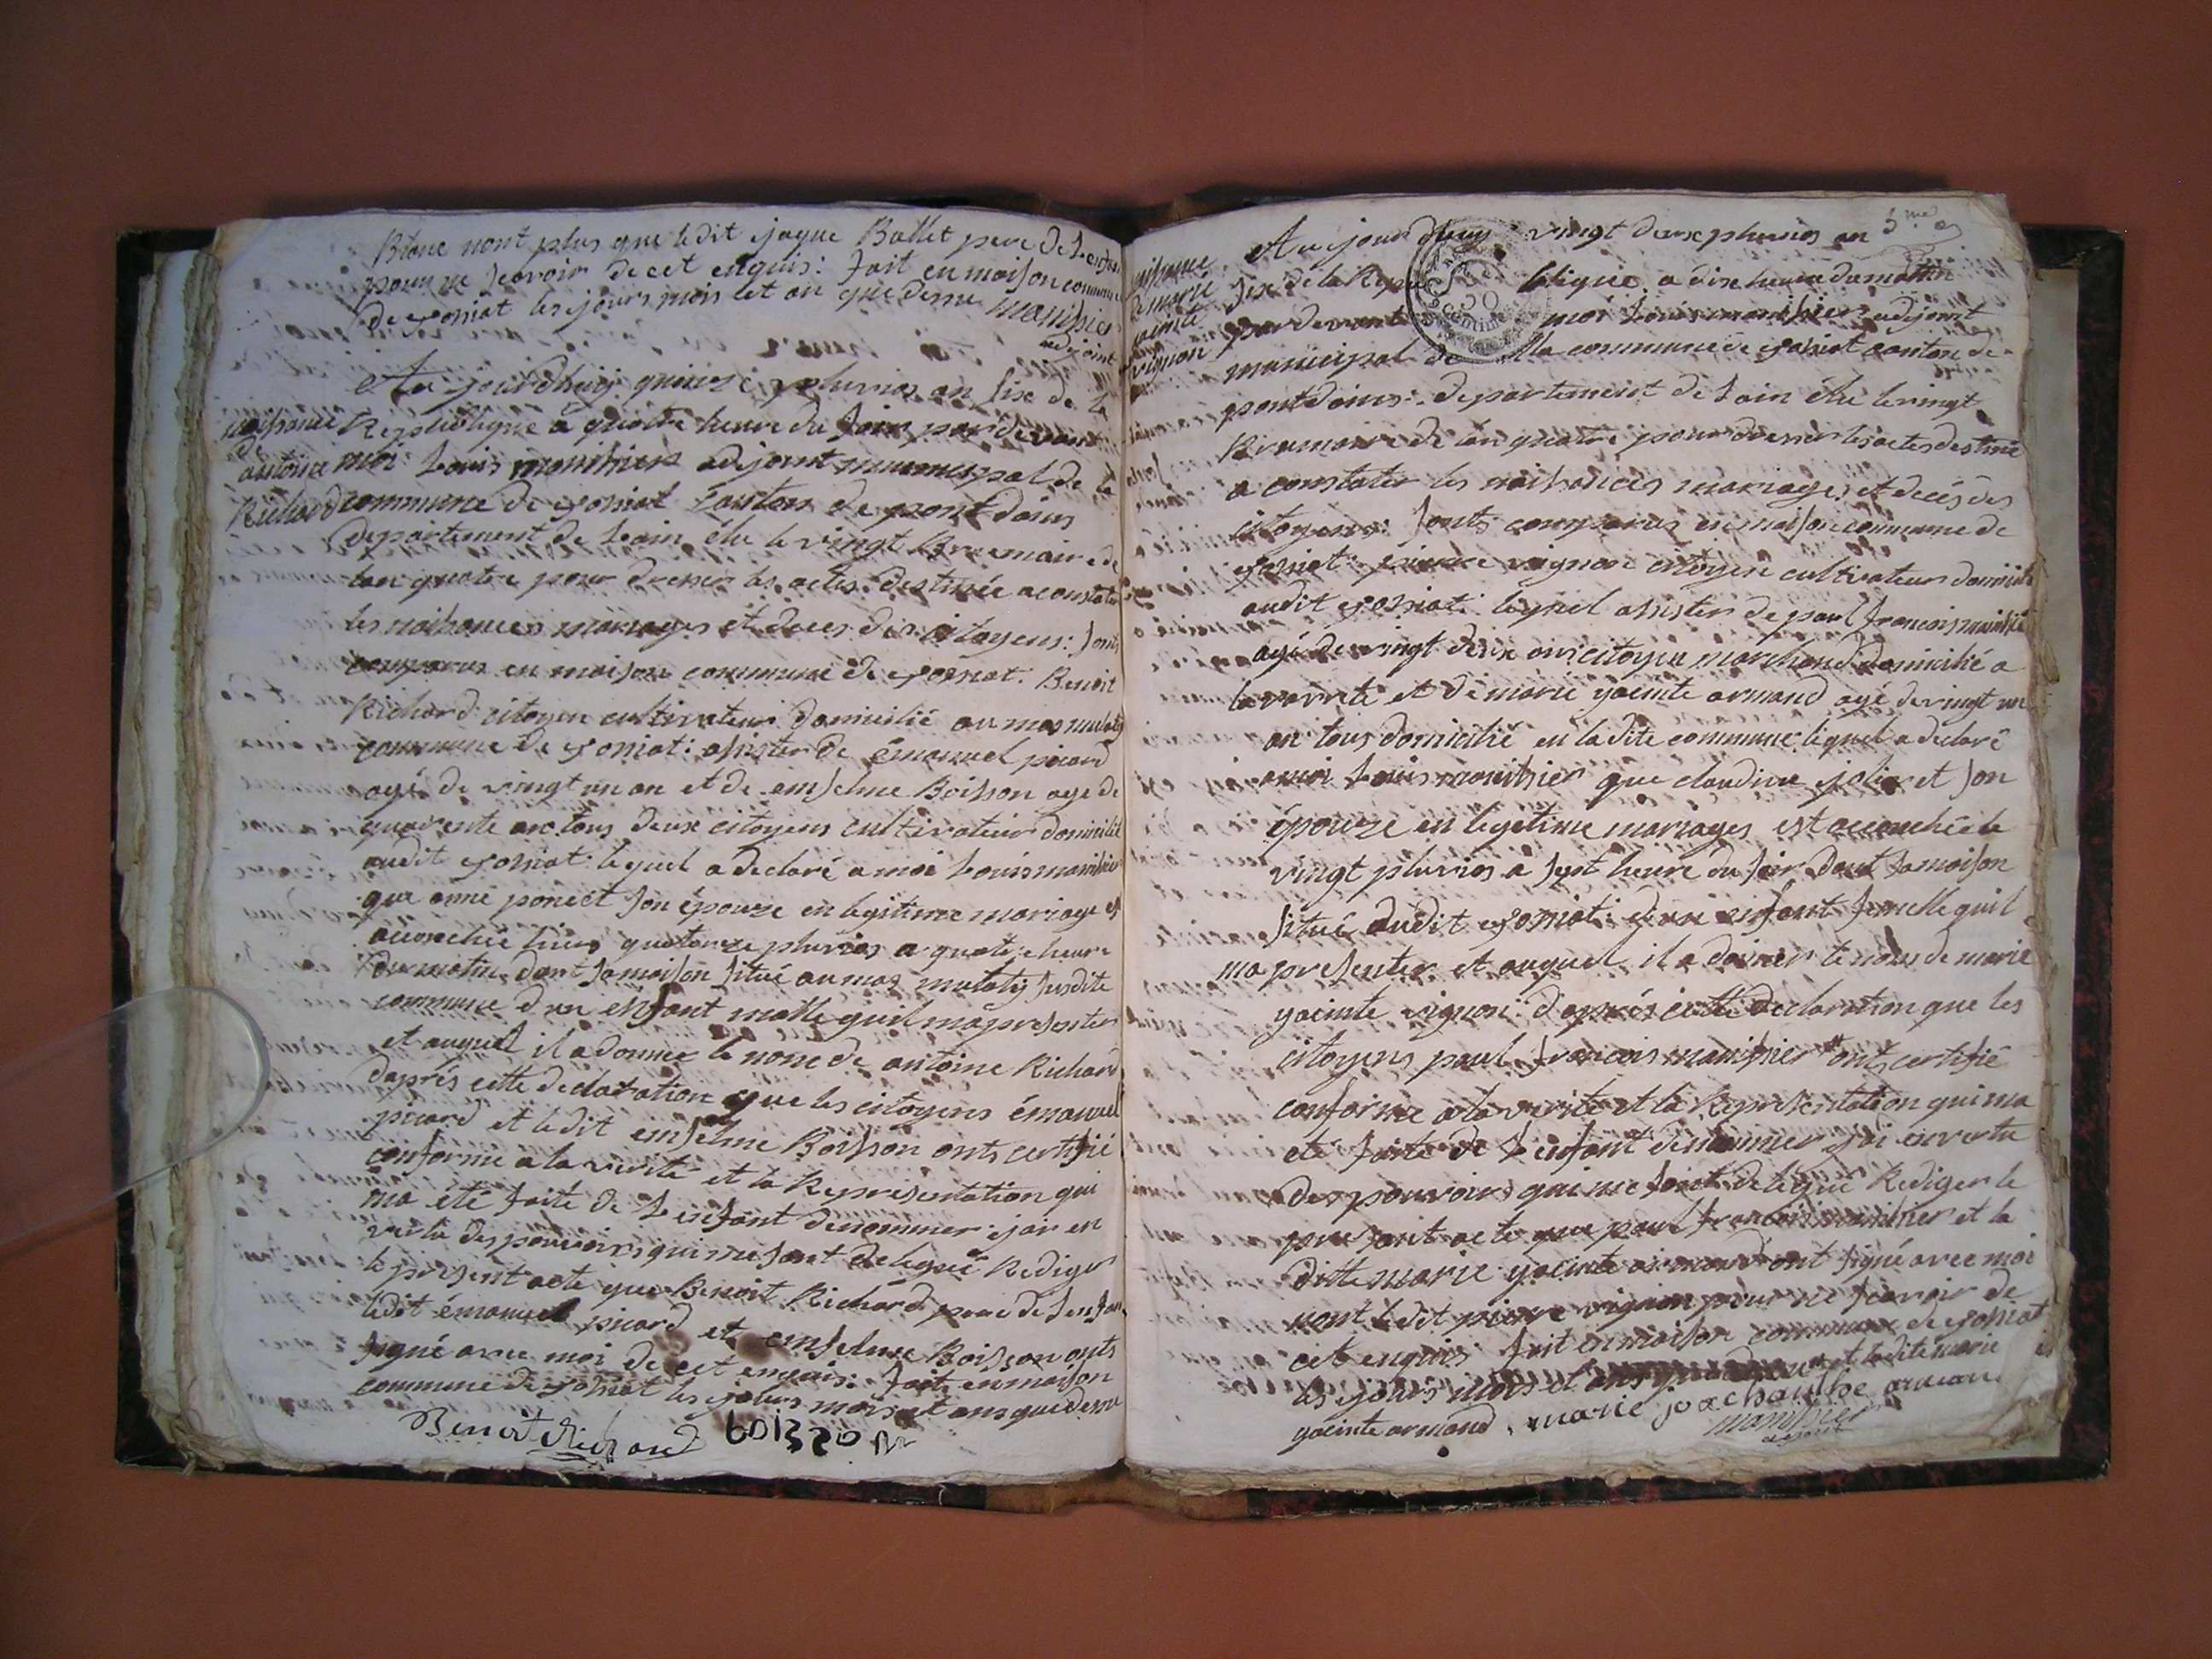 Blanc nont plus que ledit jaque Ballet pere de Lenfan
pour ne scavoir de cet enquis: fait en maison commune
de joniat les jours mois et an que dessu manissier
adjoint
naissance
de
antoine
Richard
Au jourdhuij quinze pluvios an six de la
Republique a quatre heure du soir par devant
moi Louis manissier adjoint municipal de la
commune de joniat canton de pont dains
departement de Lain élu le vingt Brumaire de
lan quatre pour dresser les actes destinée a constater
les naissances mariages et deces des citoyens: sonts
comparus en maison commune de joniat. Benoit
Richard citoyen cultivateur domicilié au mas mulatij
commune de joniat: assister de émanuel picard
agé de vingt un an et de enselme Boisson agé de
quarente an tous deux citoyens cultivateur domicilié
audit joniat lequel a declaré a moi Louis manissier
que anne poncet son épouze en legitime mariage est
accouchée hier quatorze pluvios a quatre heure
du matin dant sa maison situé au mas mulatij susdite
commune dun enfant malle quil ma presenter
et auquel il a donner le nom de antoine Richard
daprés cette declaration que les citoyens émanuel
picard et ledit enselme Boisson onts certifié
conforme a la verité et la Representation qui
ma eté faite de Lenfant denommer jai en
vertu des pouvoirs qui me sont delegué Rediger
le present acte que Benoit Richard pere de Lenfan
ledit émanuel picard et enselme Boisson onts
signé avec moi de cet enquis: fait en maison
commune de joniat les jours mois et ans que dessu
Benoit Richard boisson
5me
naissance
de marie
yacinte
vignon
Au jourdhuij vingt deux pluvios an
six de la Republique a dix heure du mattin
50
centimes
par devant moi Louis manissier adjoint
municipal de la commune de joniat canton de
pont dains: departement de Lain élu le vingt
Brumaire de lan quatre pour dresser les actes destiné
a constater les naissances mariages et decés des
citoyens: sonts comparus en maison commune de
joniat: pierre vignon citoyen cultivateur domicilié
audit joniat: lequel assister de paul francois manissié
agé de vingt deux ans citoyen marchand domicilié a
la varrete et de marie yacinte armand agé de vingt un
an tous domicilié en ladite commune: lequel a declaré
a moi Louis manissier que claudine jolier et son
épouze en legetime mariages est accouchée le
vingt pluvios a sept heure du soir dant sa maison
situé audit joniat: dun enfant femelle quil
ma presenter et auquel il a donner le nom de marie
yacinte vignon: daprés cette declaration que les
citoyens paul francois manissier # ont certifié
conforme a la verité et la Representation qui ma
eté faite de Lenfant denommer jai en vertu
des pouvoirs qui me sont delegué Rediger le
present acte que paul francois manissier et la
ditte marie yacinte armand ont signé avec moi
nont ledit pierre vignon pour ne scavoir de
cet enquis: fait en maison commune de joniat
les jours mois et ans que dessu # et ladite marie
yacinte armand. marie joachainthe arman
manissier
adjoint